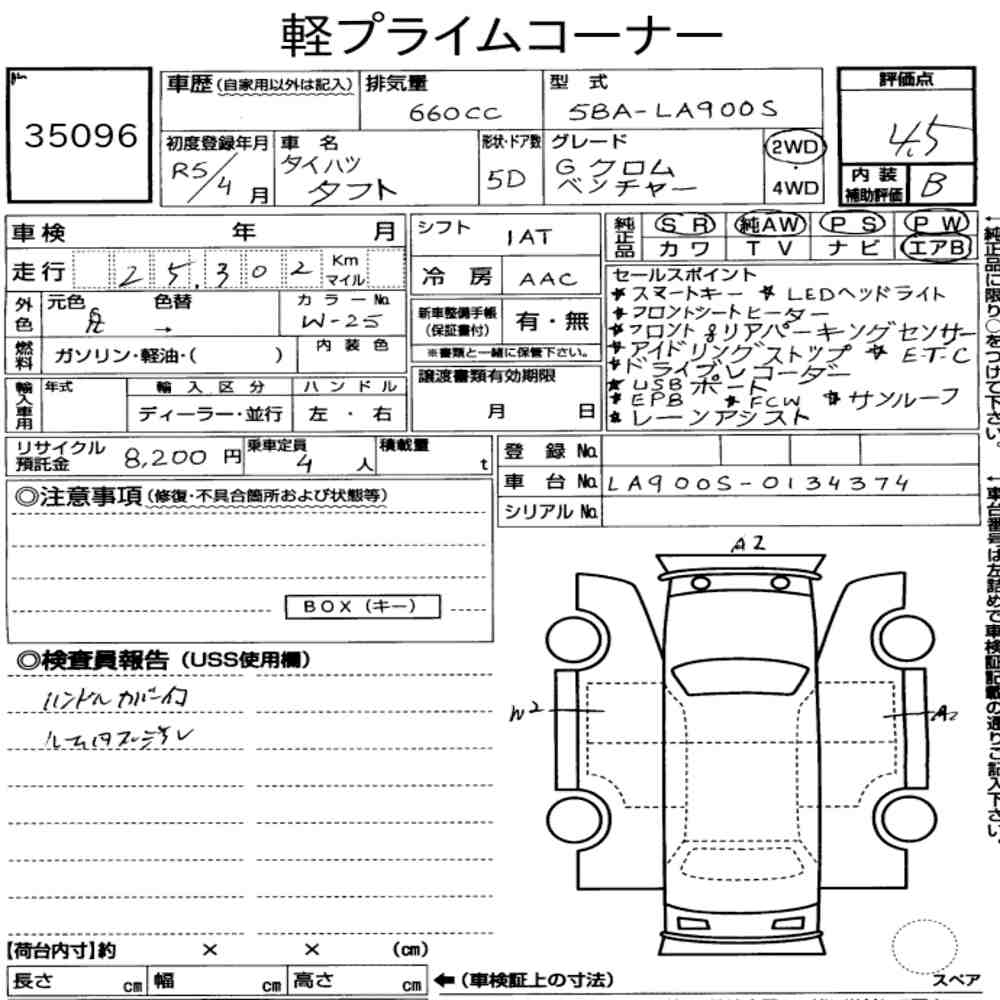 軽プライムコーナー
35096
車歴(自家用以外は記入) 排気量 型 式
660CC 5BA-LA900S
評価点
4.5
内装補助評価 B
初度登録年月 車 名 形状・ドア数 グレード
R5/4月 ダイハツ タフト 5D G クロム ベンチャー
2WD・4WD
車検 年 月
シフト 1AT
純正品 SR 純AW PS PW
カワ TV ナビ エアB
走行 25,302 Km マイル
冷房 AAC
外色 元色 色替 カラーNo.
→ W-25
新車整備手帳(保証書付) 有・無
※書類と一緒に保管下さい。
燃料 ガソリン・軽油・( ) 内装色
譲渡書類有効期限
月 日
輸入車用 年式 輸入区分 ハンドル
ディーラー・並行 左・右
セールスポイント
★スマートキー ★LEDヘッドライト
★フロントシートヒーター
★フロント&リアパーキングセンサー
★アイドリングストップ ★ETC
★ドライブレコーダー
★USBポート
★EPB ★FCW ★サンルーフ
★レーンアシスト
リサイクル預託金 8,200円 乗車定員 4人 積載量 t
登録No.
車台No. LA900S-0134374
シリアルNo.
◎注意事項(修復・不具合箇所および状態等)
BOX(キー)
◎検査員報告(USS使用欄)
ハンドルカバー付
A2
W2
A2
【荷台内寸】約 × × (cm)
長さ cm 幅 cm 高さ cm ←(車検証上の寸法)
スペア
←純正品に限り○をつけて下さい。
←車台番号は左詰めで車検証記載の通りご記入下さい。